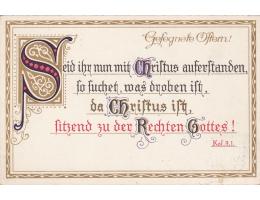 Gesegnete Ostern!
Seid ihr nun mit Christus auferstanden,
so suchet, was droben ist,
da Christus ist,
sitzend zu der Rechten Gottes!
Kol. 3,1.